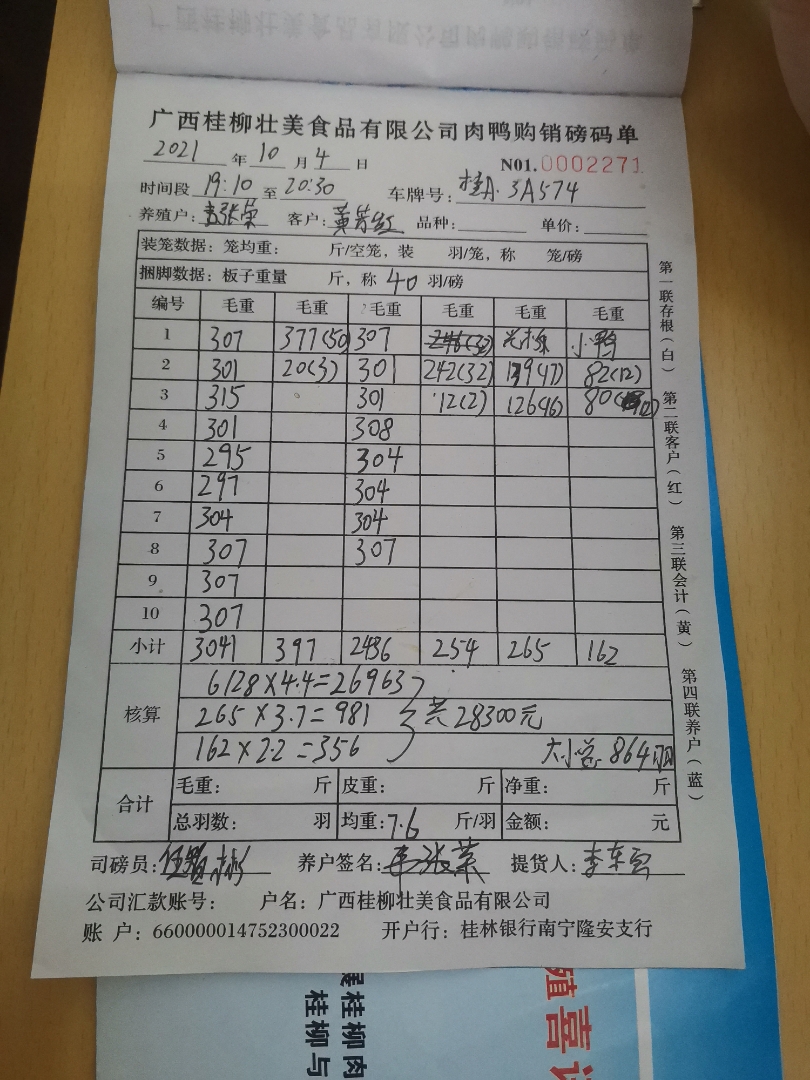 广西桂柳壮美食品有限公司肉鸭购销磅码单
2021 年 10 月 4 日 N01.0002271
时间段 19:10 至 20:30 车牌号: 桂A·3A574
养殖户: 韦张荣 客户: 黄芳红 品种: 单价:
装笼数据: 笼均重: 斤/空笼, 装 羽/笼, 称 笼/磅
捆脚数据: 板子重量 斤, 称 40 羽/磅
编号 毛重 毛重 毛重 毛重 毛重 毛重
1 307 377(50) 307 246(32) 小鸭
2 301 20(3) 301 242(32) 139(17) 82(12)
3 315 301 12(2) 126(16) 80(12)
4 301 308
5 295 304
6 297 304
7 304 304
8 307 307
9 307
10 307
小计 3041 397 2436 254 265 162
核算
6128×4.4=26963
265×3.7=981 共28300元
162×2.2=356 大小总864羽
合计
毛重: 斤 皮重: 斤 净重: 斤
总羽数: 羽 均重: 7.6 斤/羽 金额: 元
司磅员: 养户签名: 韦张荣 提货人:
公司汇款账号: 户名: 广西桂柳壮美食品有限公司
账 户: 660000014752300022 开户行: 桂林银行南宁隆安支行
第一联存根(白)
第二联客户(红)
第三联会计(黄)
第四联养户(蓝)
桂柳肉
桂柳与
殖喜